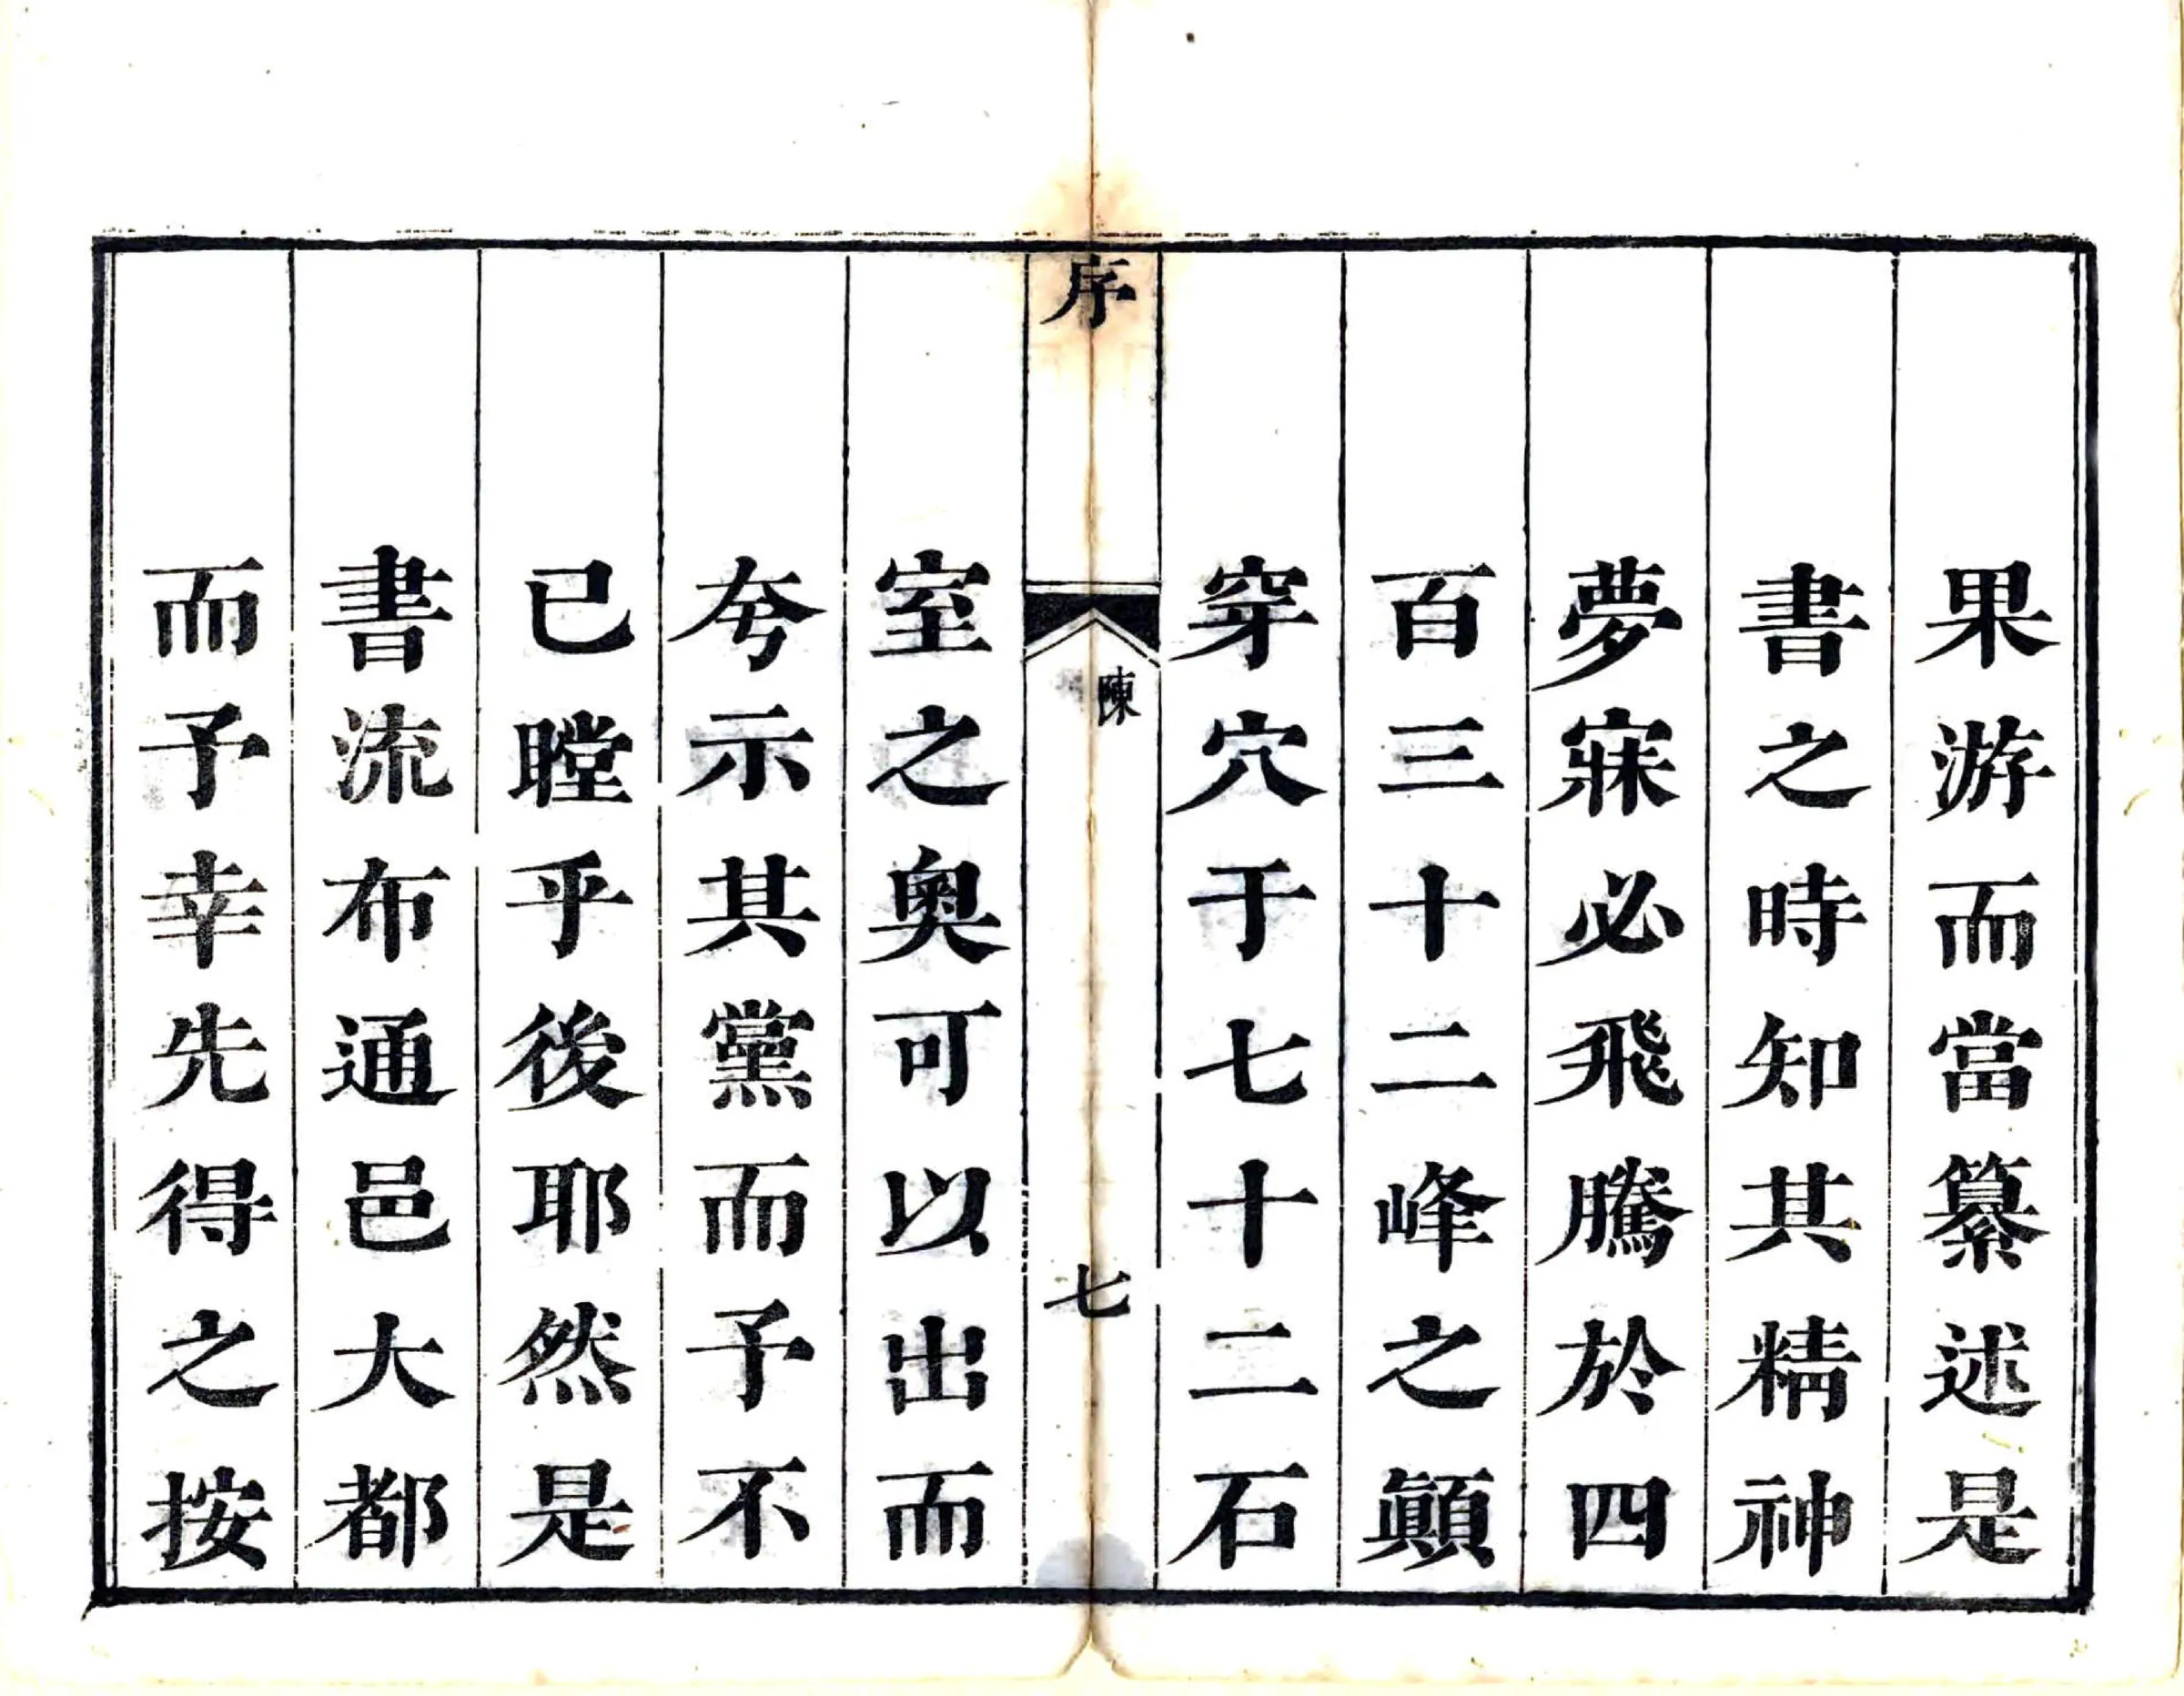 果游而當纂述是
書之時知其精神
夢寐必飛騰於四
百三十二峰之顛
穿穴于七十二石
序
陳
七
室之奧可以出而
夸示其黨而予不
已瞠乎後耶然是
書流布通邑大都
而予幸先得之按